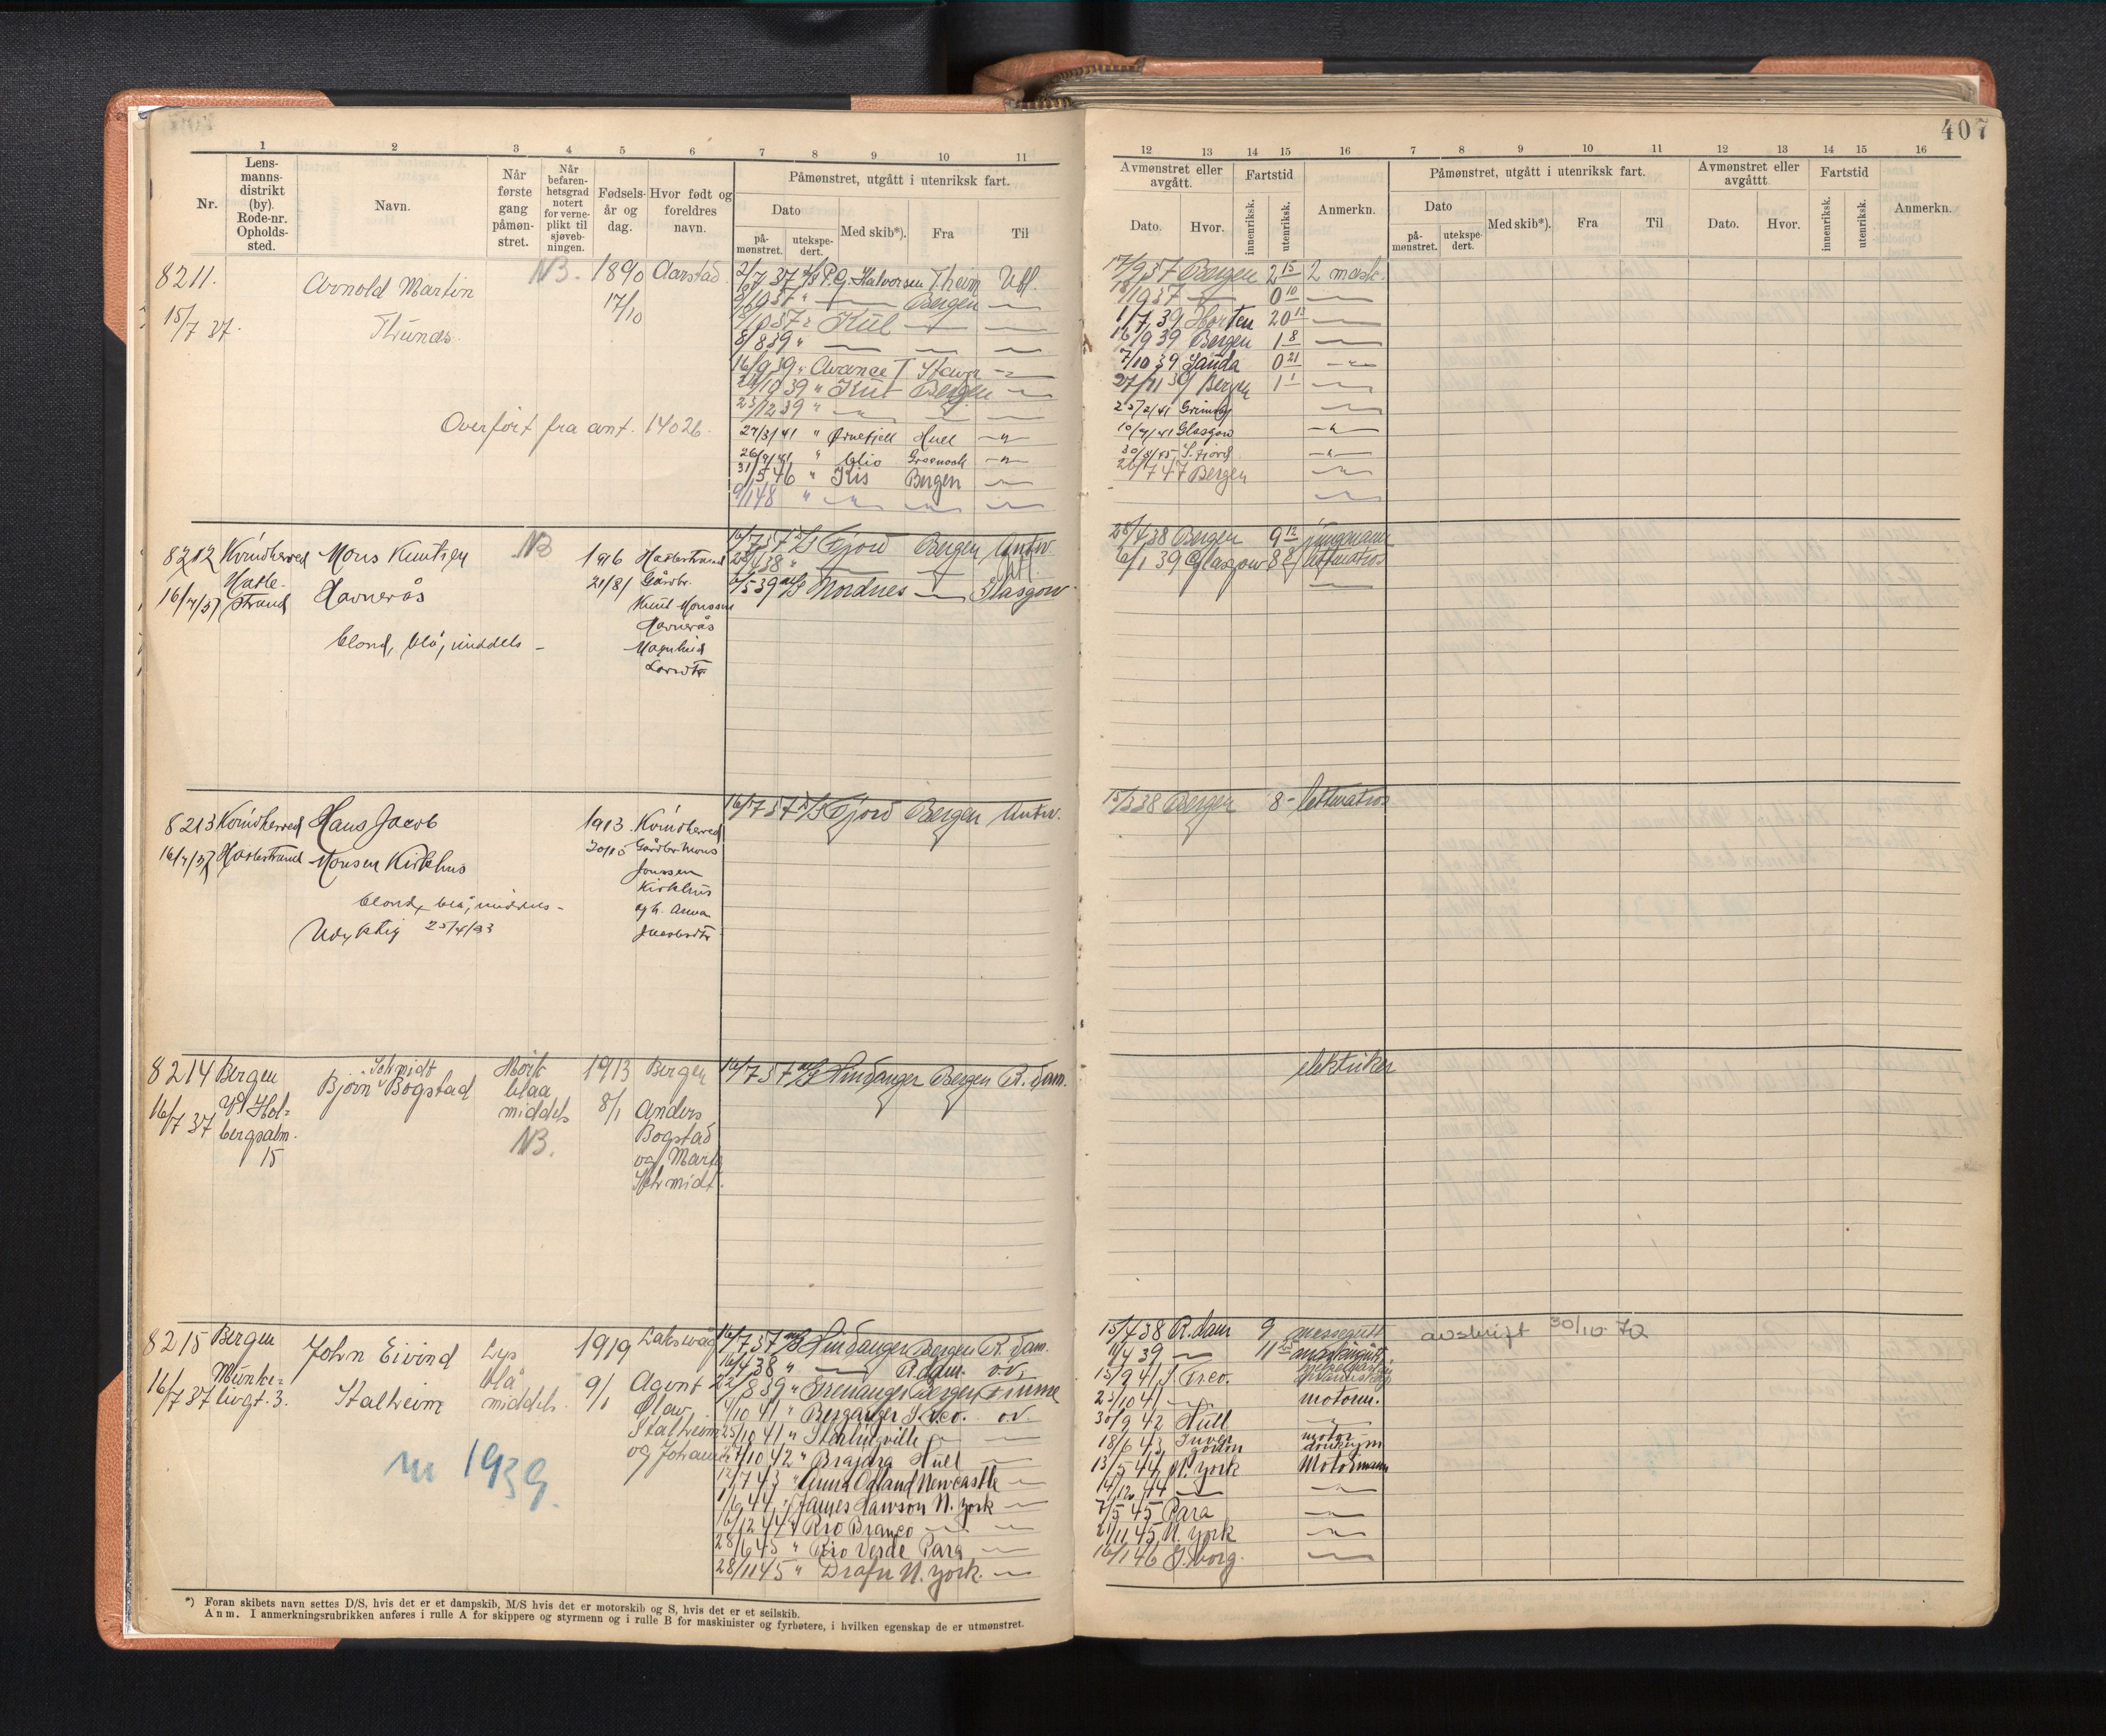 407
1 2 3 4 5 6 7 8 9 10 11
Nr.
Lens-
manns-
distrikt
(by).
Rode-nr.
Opholds-
sted.
Navn.
Når
første
gang
påmøn-
stret.
Når
befaren-
hetsgrad
notert
for verne-
plikt til
sjøveb-
ningen.
Fødsels-
år og
dag.
Hvor født og
foreldres
navn.
Påmønstret, utgått i utenriksk fart.
Dato
på-
mønstret.
utekspe-
dert.
Med skib*).
Fra
Til
12 13 14 15 16 7 8 9 10 11 12 13 14 15 16
Avmønstret eller
avgått.
Dato.
Hvor.
Fartstid
innenriksk.
utenriksk.
Anmerkn.
Påmønstret, utgått i utenriksk fart.
Dato
på-
mønstret.
utekspe-
dert.
Med skib*).
Fra
Til
Avmønstret eller
avgåttt.
Dato.
Hvor.
Fartstid
innenriksk.
utenriksk.
Anmerkn.
8211.
15/7 37.
Arnold Martin
Thunds
NB.
1890
17/10
Aarstad
Overført fra ant. 14026.
2/7 37 D/S P.G. Halvorsen T.heim Utl.
Bergen
8/8 39 "
16/9 39 " Avance I Stavn
Bergen
23/12 39 "
27/3/41 " Ørnefjell Hull
26/9/41 " Clio Greenock
31/5 46 " Kis Bergen
9/1 48 "
17/9 37 Bergen 2 15 2 mask.
0 10
1/7 39 Horten 20 13
16/9 39 Bergen 1 8
7/10 39 Sauda 0 21
27/11 39 Bergen 1 1
25/2/41 Grimsby
10/9/41 Glasgow
26/7 47 Bergen
8212 Kvindherred
Hatle-
strand
16/7/37
Mons Knutsen
Havnerås
blond, blå, middels -
NB
1916
21/8
Hatlestrand
Gårdbr.
Knut Monssen
Havnerås
16/7 37 D/S Fjord Bergen Antw.
28/4 38 " Utl.
2/5 39 M/S Nordnes Glasgow
28/4 38 Bergen 9 12 jungmann
6/1 39 Glasgow 8 8 lettmatros
8213 Kvindherred
16/7/37 Hatlestrand
Hans Jacob
Monsen Kirkhus
blond, blå, middels -
Udyktig 25/4/33
1913
Kvindherred
Gårdbr. Mons
Jonssen
Kirkhus
og h. Anna
Jacobsdtr
16/7 37 D/S Fjord Bergen Antw.
15/3 38 Bergen 8 - lettmatros
8214 Bergen
16/7 37
Hol-
bergsalm.
15
Schmidt
Bjørn Bogstad
Mørk
blaa
middels
NB.
1913
8/1
Bergen
Anders
Bogstad
og Marta
Schmidt.
16/7 37 M/S Hindanger Bergen R.dam.
elektriker
8215 Bergen
16/7 37
Munke-
livgt. 3.
John Eivind
Stalheim
Lys
blå
middels.
m 1939.
1919
9/1
Laksevåg
Agent
Olav
Stalheim
og Johanne
16/7 37 M/S Hindanger Bergen R.dam.
16/4 38 " R.dam. o.v.
22/8 39 " Grenanger Bergen Fiume
4/10 41 " Berganger S. Frco. o.v.
25/10 41 " Sterlingville
27/10 42 " Brajara Hull
12/7 43 " Anna Odland Newcastle
1/6 44 " James Hawson N. York
16/12 44 " Rio Branco
28/6 45 " Rio Verde Para
28/11 45 " Drafn N. York.
15/4 38 R.dam 9 messegutt
11/4 39
15/9 41 S. Frco.
23/10 41 motorm.
30/9 42 Hull
18/6 43 Inver
gordon
motor
donkeym
13/5 44 N. York Motormann
14/12 44
7/5 45 Para
21/11 45 N. York
16/1 46 G.borg.
avskrift 30/10 72
*) Foran skibets navn settes D/S, hvis det er et dampskib, M/S hvis det er motorskib og S, hvis det er et seilskib.
Anm. I anmerkningsrubrikken anføres i rulle A for skippere og styrmenn og i rulle B for maskinister og fyrbøtere, i hvilken egenskap de er utmønstret.